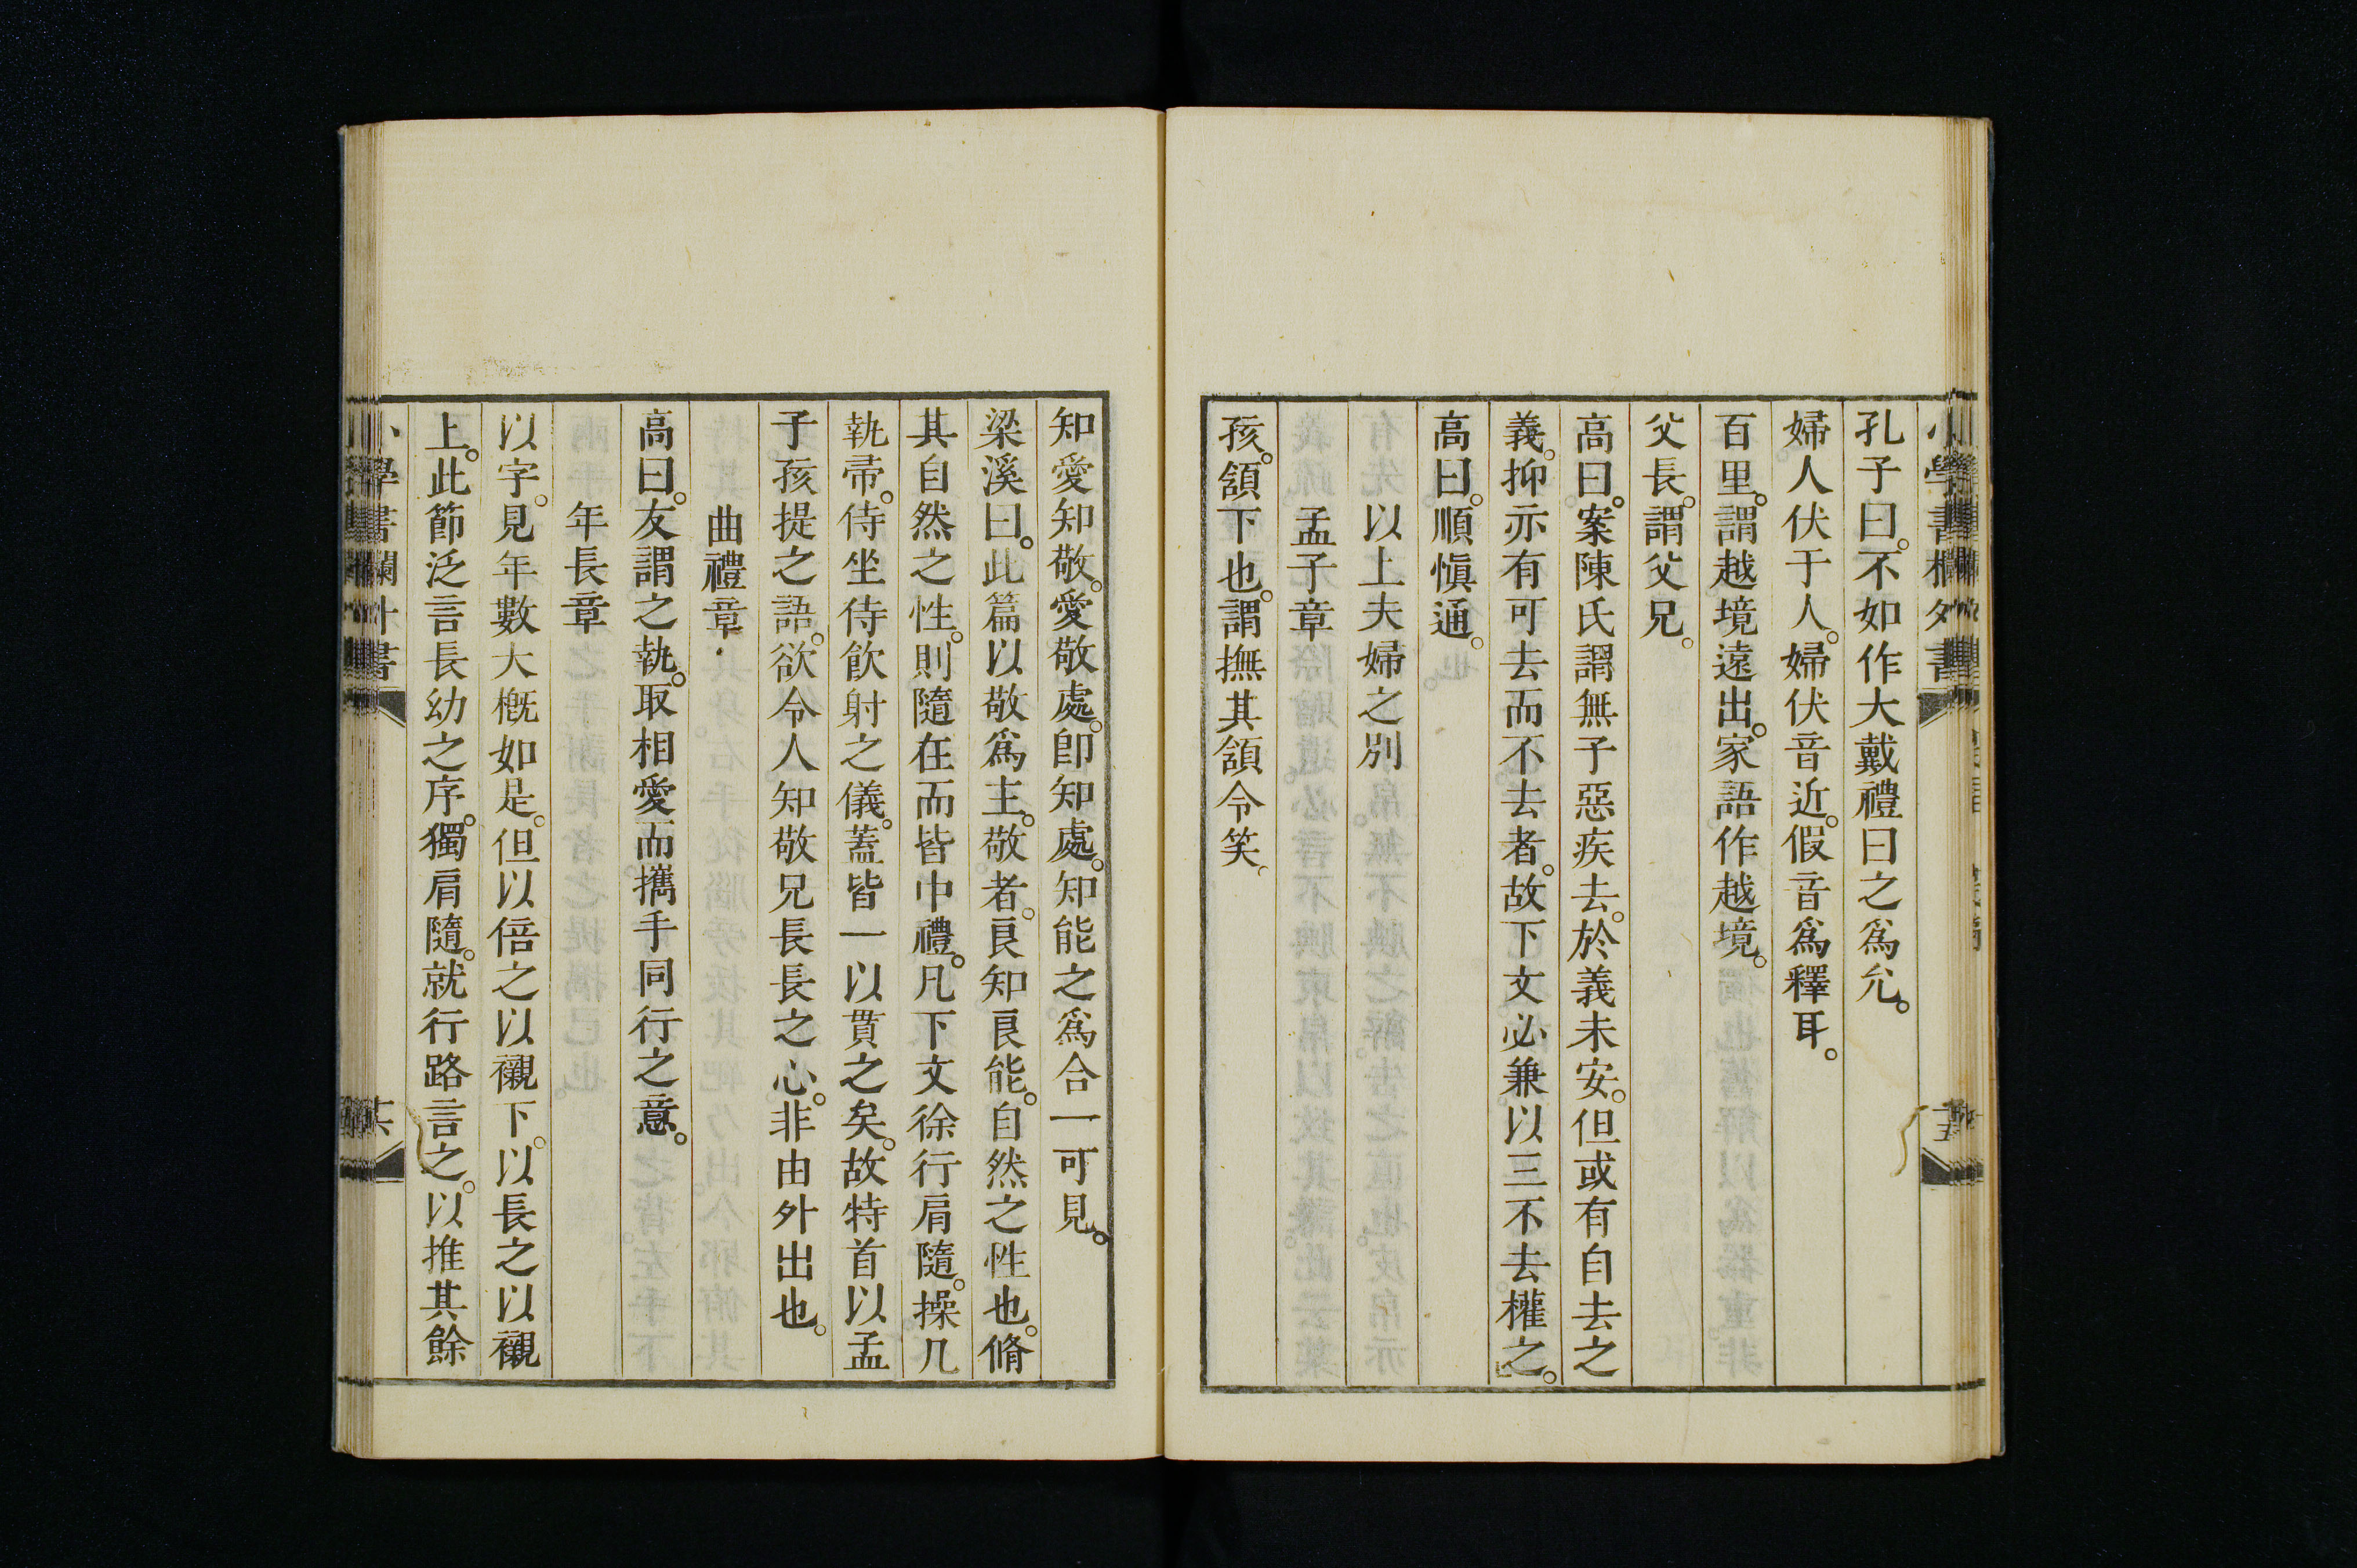 孔子曰。不如作大戴禮曰之爲允。
婦人伏于人。婦伏音近。假音爲釋耳。
百里。謂越境遠出。家語作越境。
父長。謂父兄。
高曰。案陳氏謂無子惡疾去。於義未安。但或有自去之
義。抑亦有可去而不去者。故下文必兼以三不去權之。
高曰。順愼通。
以上夫婦之別
孟子章
孩。頷下也。謂撫其頷令笑。
知愛知敬。愛敬處。卽知處。知能之爲合一可見。
梁溪曰。此篇以敬爲主。敬者。良知良能。自然之性也。脩
其自然之性。則隨在而皆中禮。凡下文徐行肩隨。操几
執帚。侍坐侍飮射之儀。蓋皆一以貫之矣。故特首以孟
子孩提之語。欲令人知敬兄長長之心。非由外出也。
曲禮章
高曰。友謂之執。取相愛而攜手同行之意。
年長章
以字。見年數大槪如是。但以倍之以襯下。以長之以襯
上。此節泛言長幼之序。獨肩隨。就行路言之。以推其餘
小學書欄外書